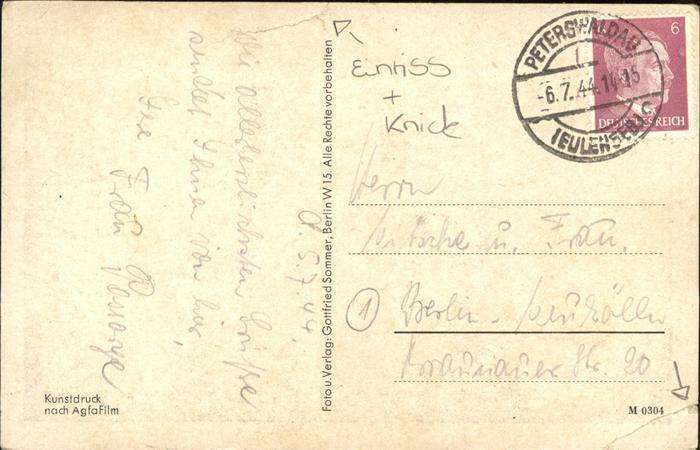 d. 5.7.44.
Die allerherzlichsten Grüße
sendet Ihnen von hier
Ihre Frau
Kunstdruck
nach AgfaFilm
Foto u. Verlag: Gottfried Sommer, Berlin W 15. Alle Rechte vorbehalten
Einriss
+
Knick
PETERSWALDAU
-6.7.44.14-15
(EULENGEB.)
6
DEUTSCHES REICH
Herrn
u. Frau.
① Berlin-Neukölln
Braunauer Str. 20
M 0304